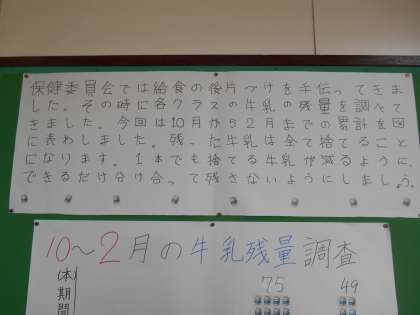 保健委員会では給食の後片づけを手伝ってきま
した。その時に各クラスの牛乳の残量を調べて
きました。今回は10月から2月までの累計を図
に表わしました。残った牛乳は全て捨てること
になります。1本でも捨てる牛乳が減るように
できるだけ分け合って残さないようにしましょう。
10～2月の牛乳残量調査
(本
期間
75
49